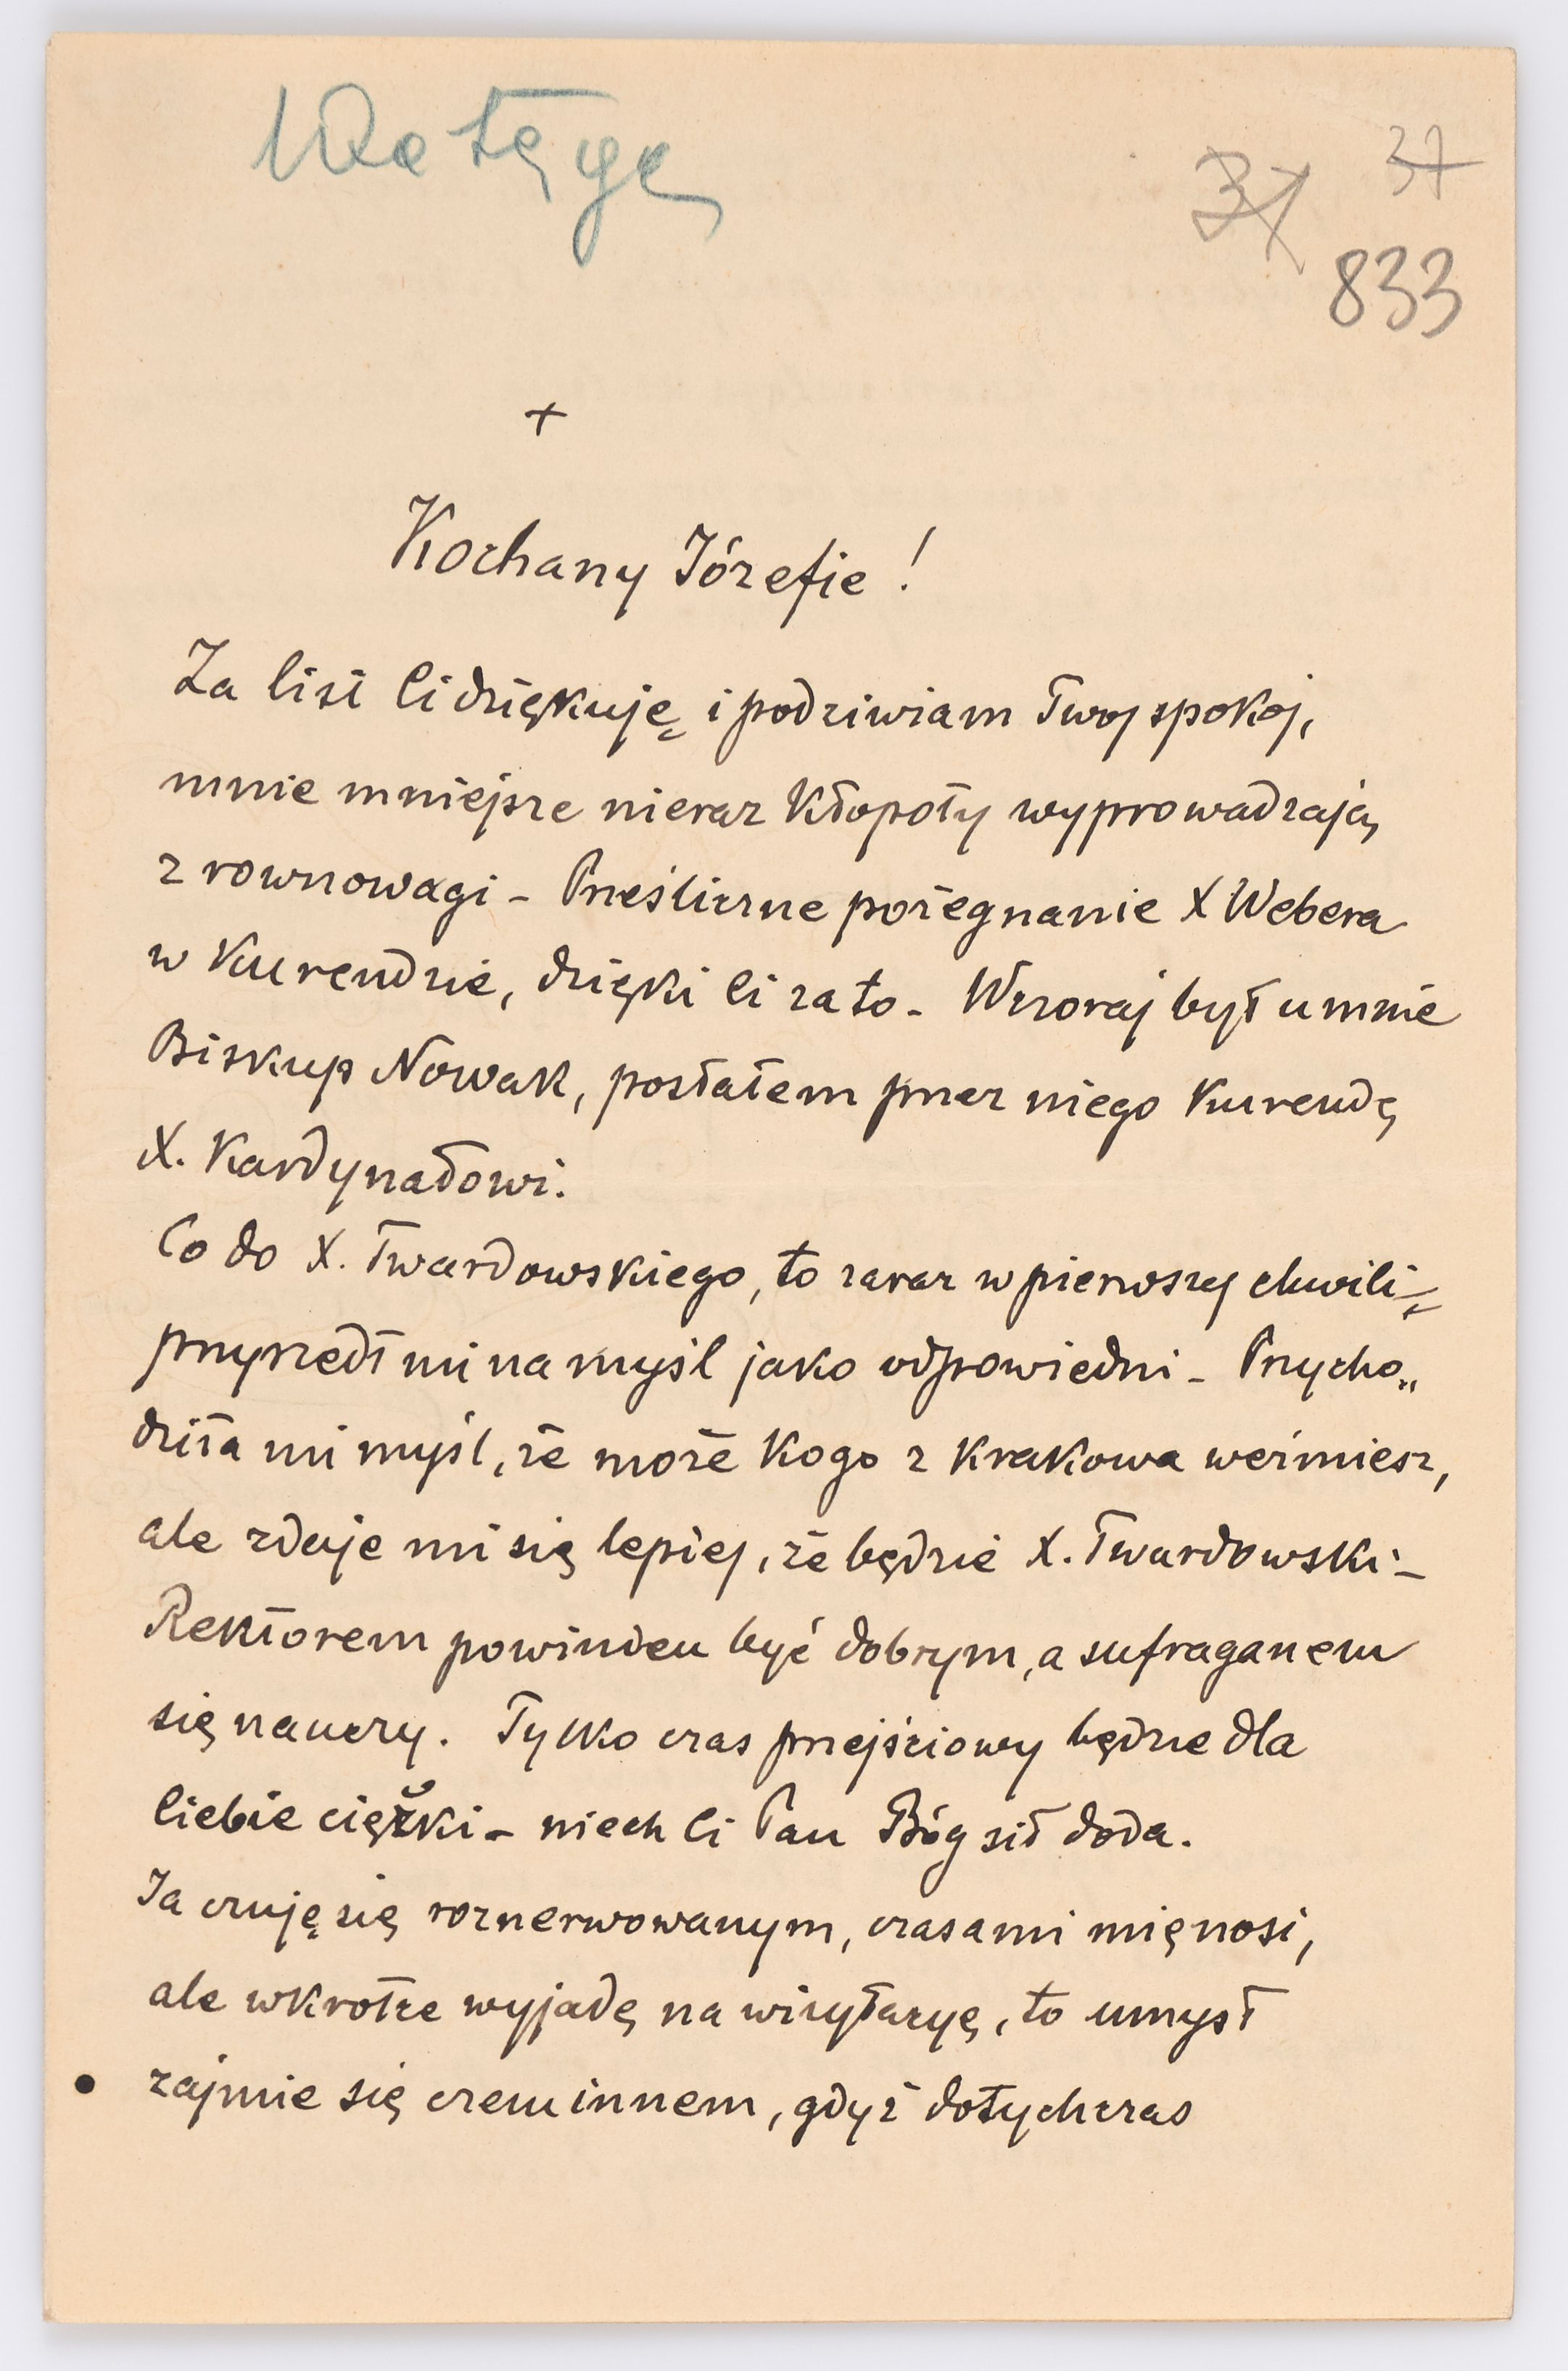 Wałęga
37
37
833
+
Kochany Józefie!
Za list Ci dziękuję i podziwiam Twoj spokoj,
mnie mniejsze nieraz kłopoty wyprowadzają
z rownowagi - Prześliczne pożegnanie X Webera
w Kurendzie, dzięki Ci za to - Wczoraj był u mnie
Biskup Nowak, posłałem przez niego Kurendę
X. Kardynałowi.
Co do X. Twardowskiego, to zaraz w pierwszej chwili
przyszedł mi na myśl jako odpowiedni - Przycho„
dziła mi myśl, że może kogo z Krakowa weźmiesz,
ale zdaje mi się lepiej, że będzie X. Twardowski -
Rektorem powinien być dobrym, a sufraganem
się nauczy. Tylko czas przejściowy będzie dla
Ciebie ciężki - niech Ci Pan Bóg sił doda.
Ja czuję się roznerwowanym, czasami mię nosi,
ale wkrotce wyjadę na wizytacyę, to umysł
zajmie się czem innem, gdyż dotychczas